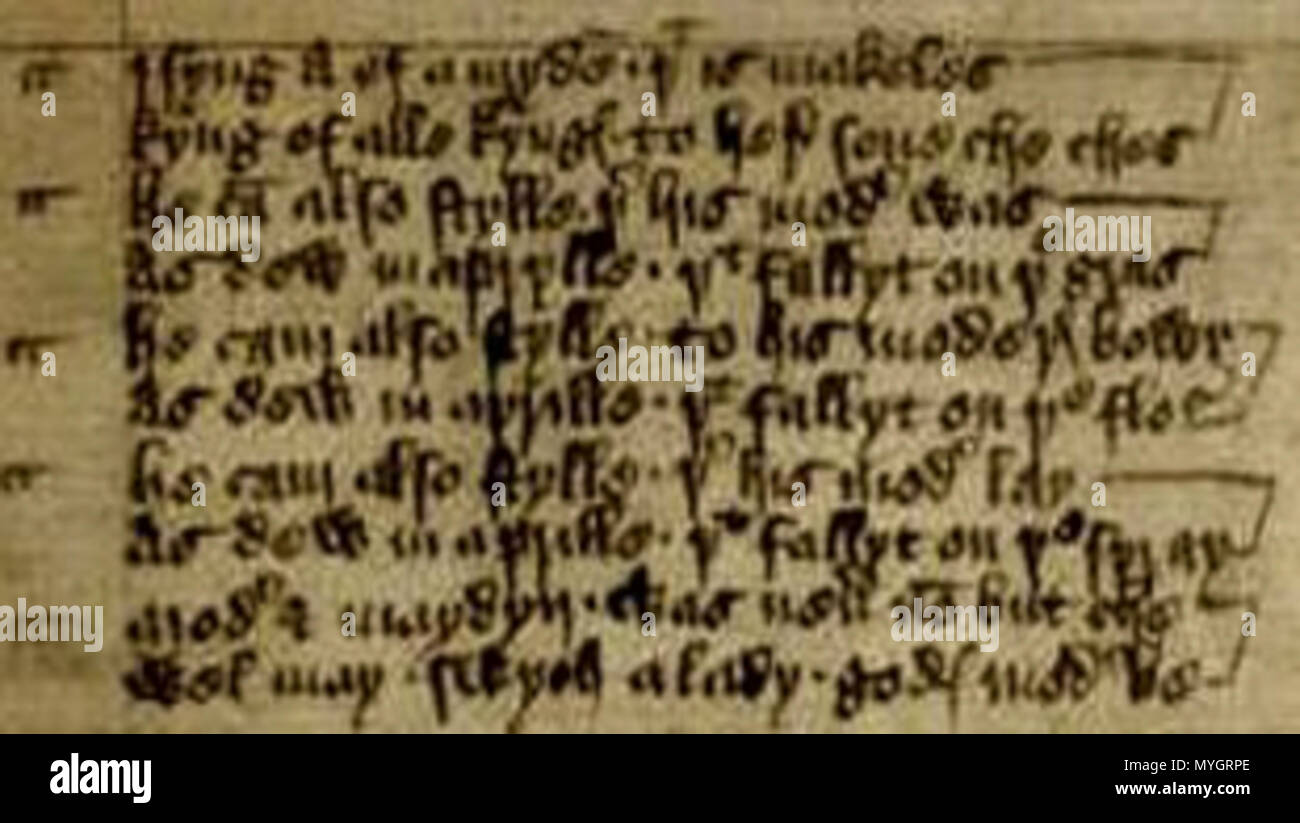 I syng a of a myden · þt is makeles
kyng of alle kynges to here sone che ches
he cā also stylle · þr his moder was
as dew in aprylle · þt fallyt on þe gras
he cam also stylle · to his moderes bowr
as dew in aprille · þt fallyt on þe flour
he cam also stylle · þr his moder lay
as dew in aprille · þt fallyt on þe spray
moder & maydyn · was neuer nō but che
wel may swych a lady · godes moder be
alamy
MYGRPE
www.alamy.com